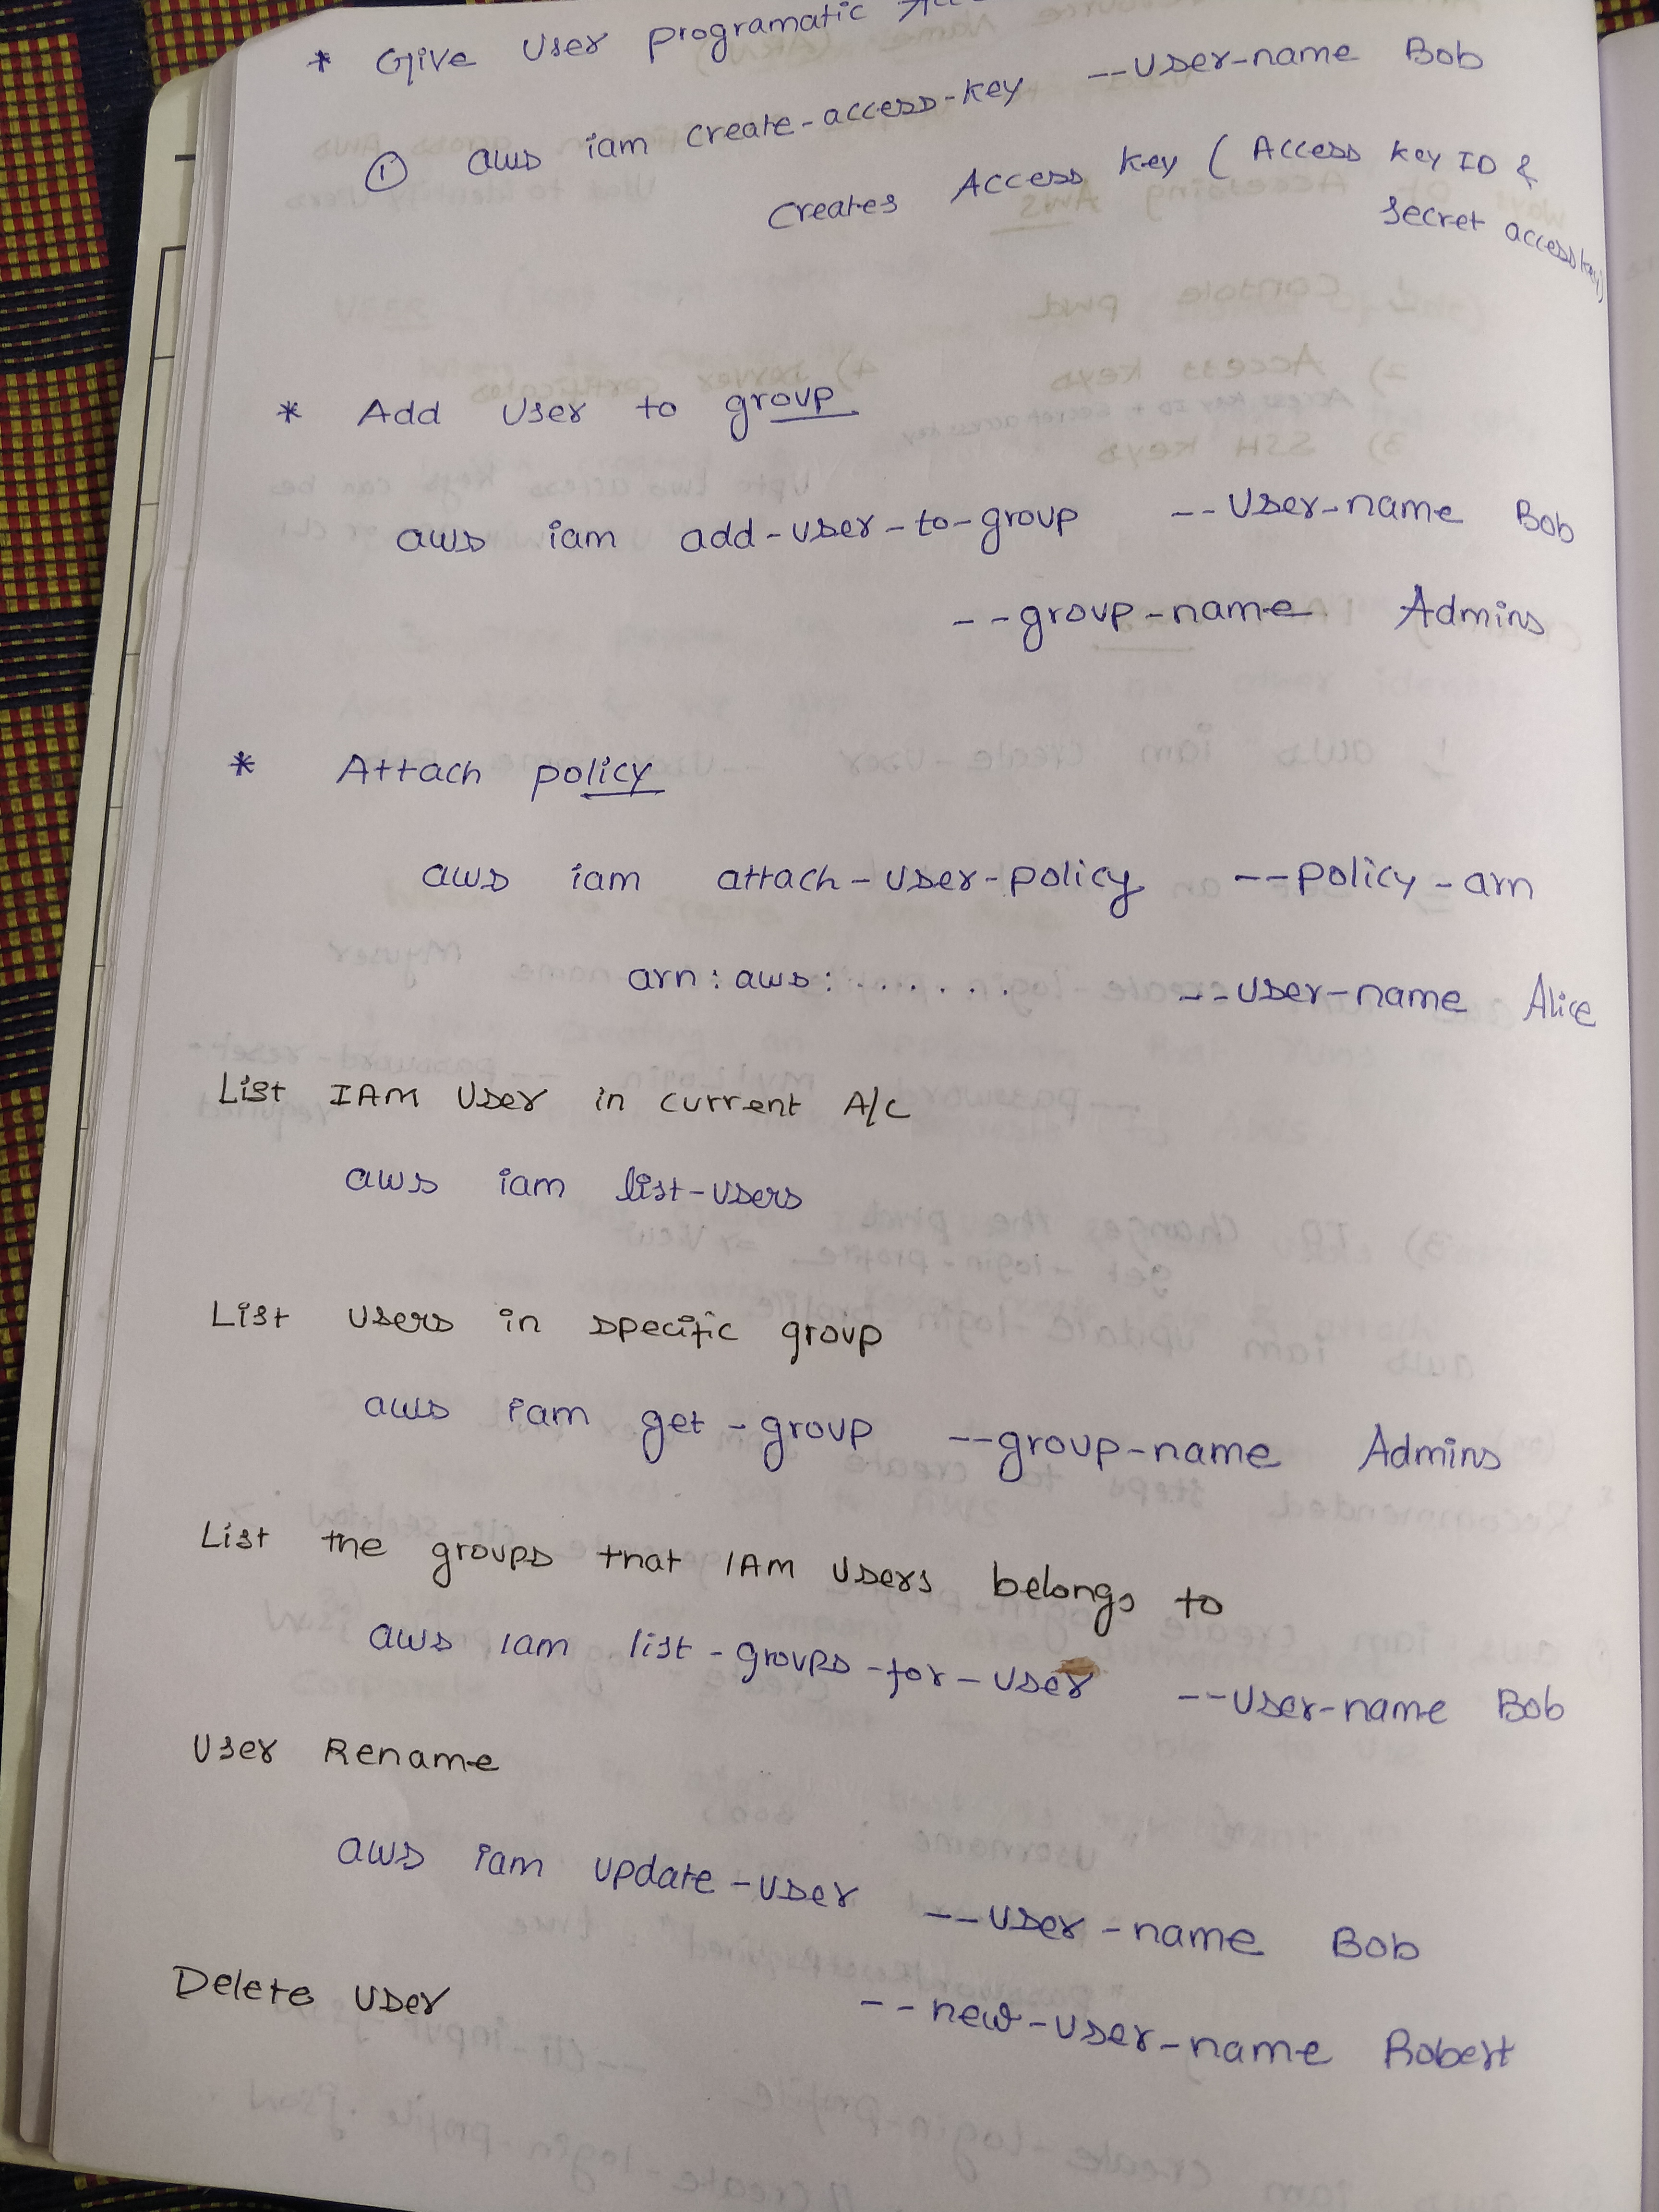 * Give User programatic
① aws iam create-access-key --user-name Bob
Creates Access key ( Access key ID &
Secret access key)
* Add User to group
aws iam add-user-to-group --user-name Bob
--group-name Admins
* Attach policy
aws iam attach-user-policy --policy-arn
arn:aws:....... --user-name Alice
List IAM User in current A/C
aws iam list-users
List users in specific group
aws iam get-group --group-name Admins
List the groups that IAM users belongs to
aws iam list-groups-for-user --user-name Bob
User Rename
aws iam update-user --user-name Bob
Delete User --new-user-name Robert